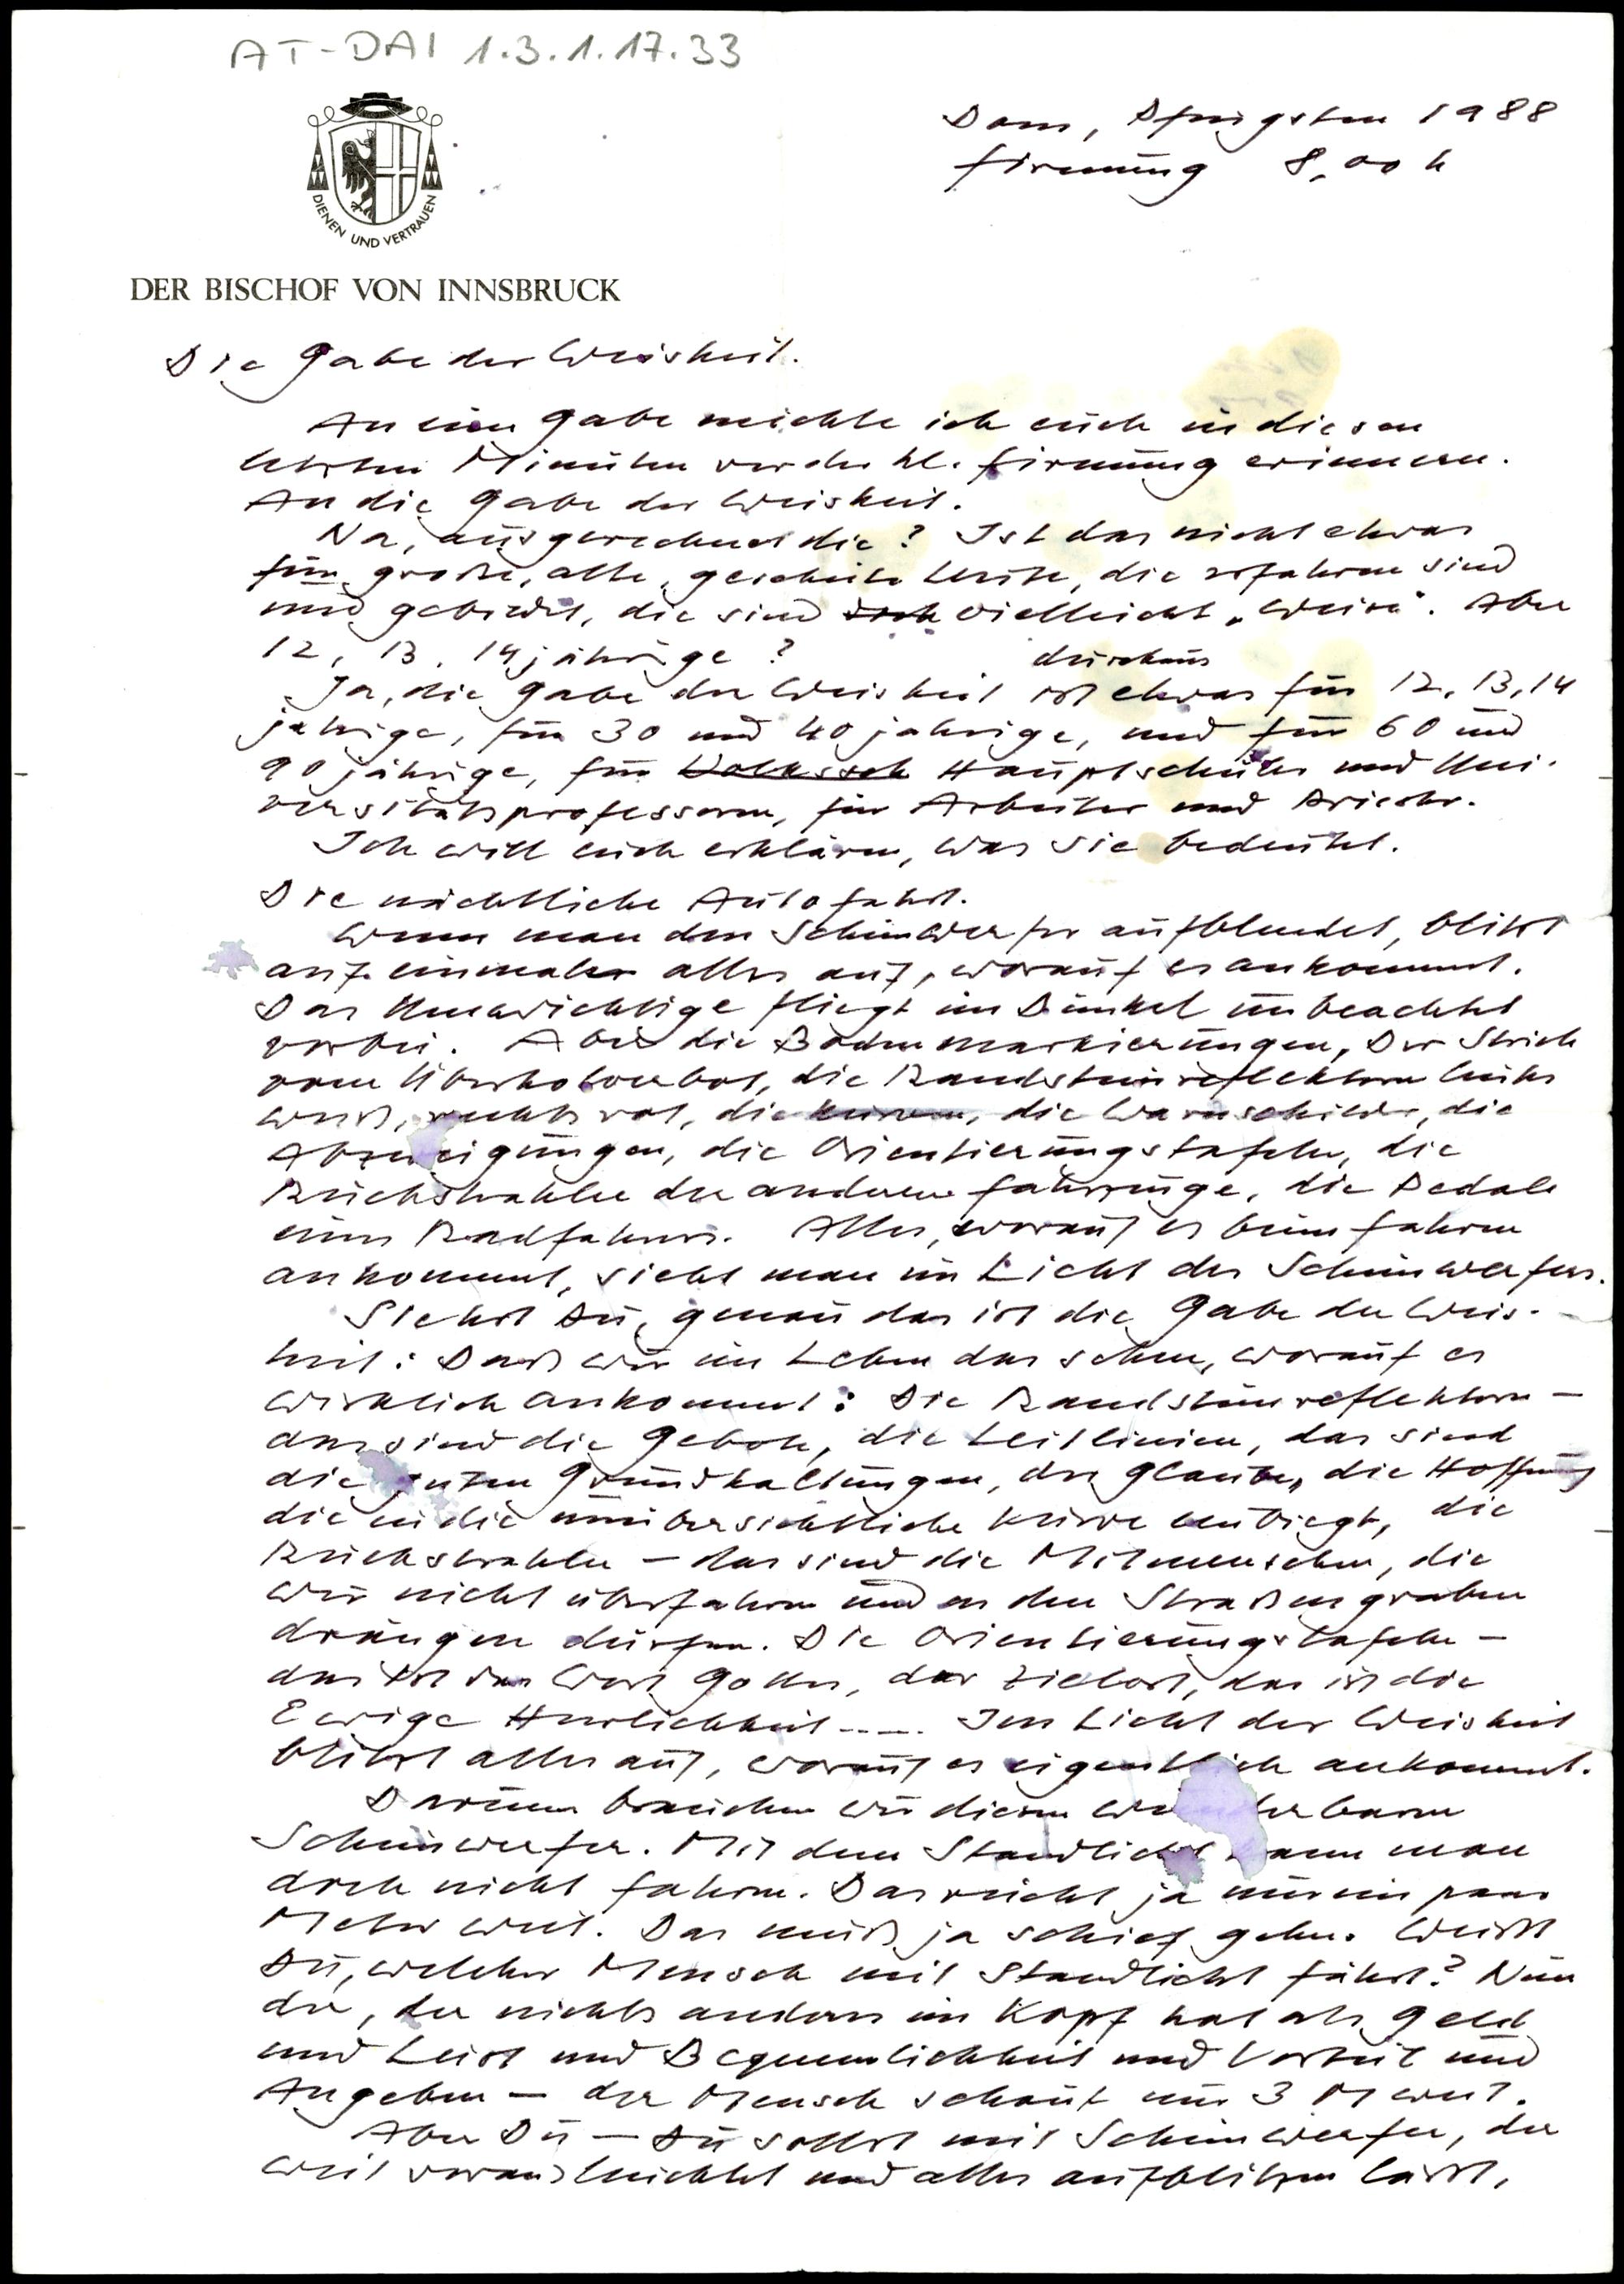 AT-DAI 1.3.1.17.33
Dom, Pfingsten 1988
Firmung 8,00 h
DIENEN UND VERTRAUEN
DER BISCHOF VON INNSBRUCK
Die Gabe der Weisheit.
An eine Gabe möchte ich euch in diesen
letzten Minuten vor der hl. Firmung erinnern.
An die Gabe der Weisheit.
Na, ausgerechnet die? Ist das nicht etwas
für große, alte, gescheite Leute, die erfahren sind
und gebildet, die sind vielleicht „weise". Aber
12, 13, 14 jährige?
durchaus
Ja, die Gabe der Weisheit ist etwas für 12, 13, 14
jährige, für 30 und 40 jährige, und für 60 und
90 jährige, für Volkssch Hauptschüler und Uni-
versitätsprofessoren, für Arbeiter und Priester.
Ich will euch erklären, was sie bedeutet.
Die nächtliche Autofahrt.
Wenn man den Scheinwerfer aufblendet, blitzt
auf einmal alles auf, worauf es ankommt.
Das Unwichtige fliegt im Dunkel unbeachtet
vorbei. Aber die Bodenmarkierungen, der Strich
vom Überholverbot, die Randsteinreflektoren links
weiß, rechts rot, die Kurven, die Warnschilder, die
Abzweigungen, die Orientierungstafeln, die
Rückstrahler der anderen Fahrzeuge, die Pedale
eines Radfahrers. Alles, worauf es beim Fahren
ankommt, sieht man im Licht der Scheinwerfer.
Siehst Du, genau das ist die Gabe der Weis-
heit: Daß wir im Leben das sehen, worauf es
wirklich ankommt: Die Randsteinreflektoren —
das sind die Gebote, die Leitlinien, das sind
die guten Grundhaltungen, der Glaube, die Hoffnung
die in die unübersichtliche Kurve einbiegt, die
Rückstrahler — das sind die Mitmenschen, die
wir nicht überfahren und in den Straßengraben
drängen dürfen. Die Orientierungstafeln —
das ist das Wort Gottes, der Zielort, das ist die
Ewige Herrlichkeit..... Im Licht der Weisheit
blitzt alles auf, worauf es eigentlich ankommt.
Darum brauchen wir diesen wunderbaren
Scheinwerfer. Mit dem Standlicht kann man
doch nicht fahren. Das reicht ja nur ein paar
Meter weit. Das muß ja schief gehen. Weißt
Du, welcher Mensch mit Standlicht fährt? Nun
der, der nichts anders im Kopf hat als Geld
und Lust und Bequemlichkeit und Vorteil und
Angeben — der Mensch schaut nur 3 M weit.
Aber Du — Du sollst mit Scheinwerfer, der
weit voraus leuchtet und alles aufblitzen lässt,